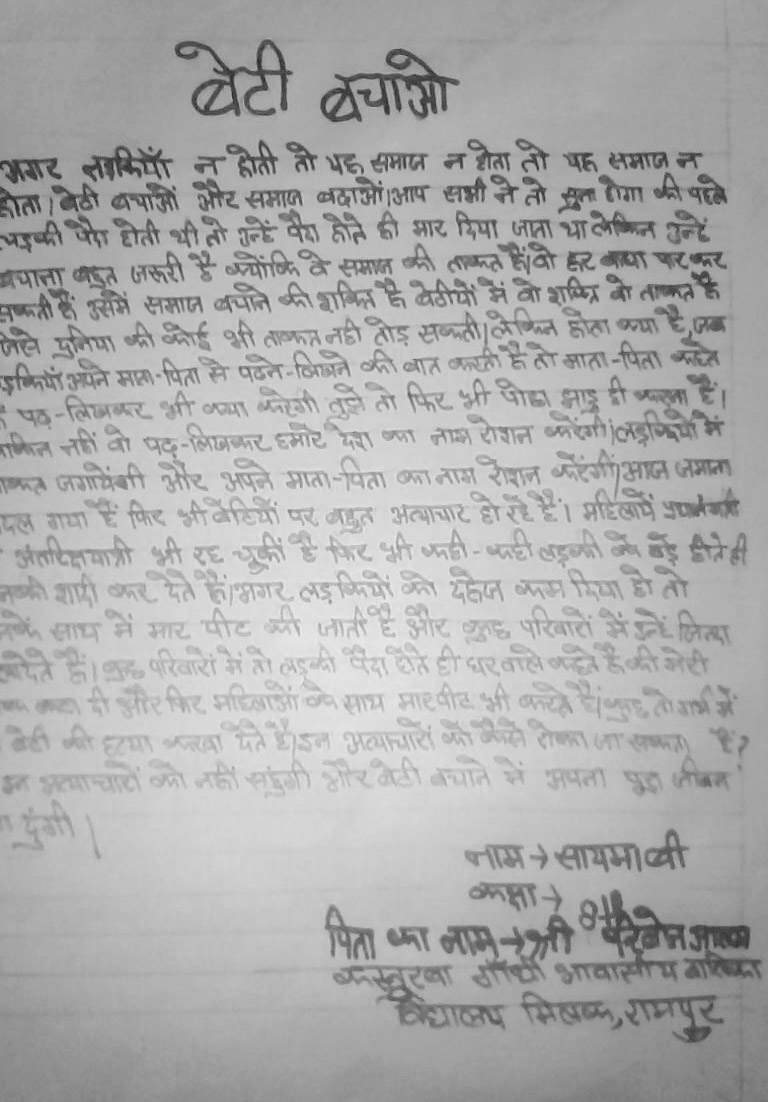 बेटी बचाओ
अगर लड़कियाँ न होती तो यह समाज न होता तो यह समाज न
होता। बेटी बचाओं और समाज बढाओं। आप सभी ने तो सुना होगा की पहले
लड़की पैदा होती थी तो उन्हें पैदा होते ही मार दिया जाता था लेकिन उन्हें
बचाना बहुत जरूरी है क्योंकि वे समाज की ताकत हैं। वो हर बाधा पार कर
सकती हैं उसमें समाज बचाने की शक्ति है बेटीयों में वो शक्ति वो ताकत है
जिसे दुनिया की कोई भी ताकत नही तोड़ सकती। लेकिन होता क्या है, जब
लड़कियाँ अपने माता-पिता से पढने-लिखने की बात करती हैं तो माता-पिता कहते
पढ़-लिखकर भी क्या करेगी तुझे तो फिर भी पोछा झाडू ही करना है।
लेकिन नहीं वो पढ़-लिखकर हमारे देश का नाम रोशन करेंगी। लड़कियों में
ताकत जगायेंगी और अपने माता-पिता का नाम रोशन करेंगी। आज जमाना
बदल गया हैं फिर भी बेटियों पर बहुत अत्याचार हो रहे हैं। महिलायें प्रधानमंत्री
अंतरिक्षयात्री भी रह चुकीं है फिर भी कही-कही लड़की के बड़े होते ही
उनकी शादी कर देते हैं। अगर लड़कियों को दहेज कम दिया हो तो
उनके साथ में मार पीट की जाती है और कुछ परिवारों में उन्हें जिन्दा
देते हैं। कुछ परिवारों में तो लड़की पैदा होते ही घर वाले कहते है की मेरी
कटा दी और फिर महिलाओं के साथ मारपीट भी करते हैं। कुछ तो गर्भ में
बेटी की हत्या करवा देते है। इन अत्याचारों को कैसे रोका जा सकता है?
इन अत्याचारों को नहीं सहुंगी और बेटी बचाने में अपना पूरा जीवन
दुंगी।
नाम → सायमा बी
कक्षा → 8th
पिता का नाम → श्री परवेज आलम
कस्तूरबा गाँधी आवासीय बालिका
विद्यालय मिलक, रामपुर